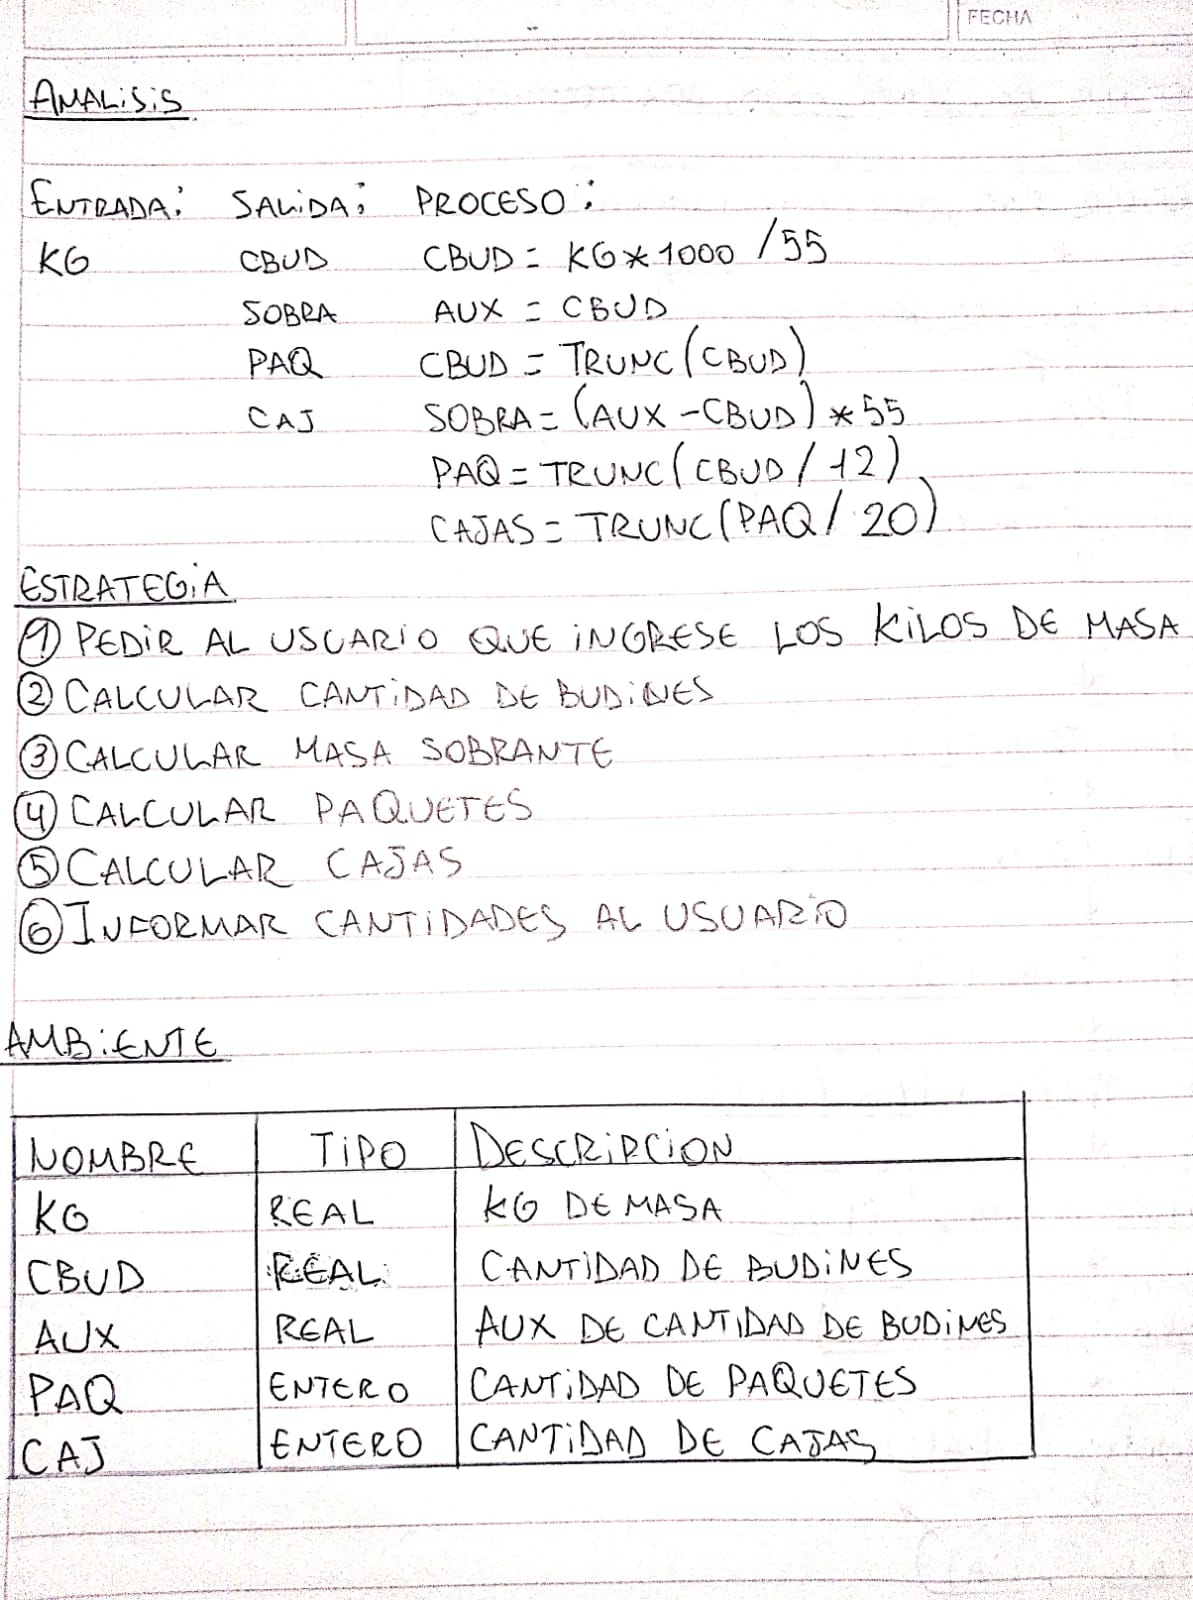 FECHA
ANALISIS
ENTRADA: SALIDA: PROCESO:
KG CBUD CBUD = KG * 1000 / 55
SOBRA AUX = CBUD
PAQ CBUD = TRUNC (CBUD)
CAJ SOBRA = (AUX - CBUD) * 55
PAQ = TRUNC (CBUD / 12)
CAJAS = TRUNC (PAQ / 20)
ESTRATEGIA
① PEDIR AL USUARIO QUE INGRESE LOS KILOS DE MASA
② CALCULAR CANTIDAD DE BUDINES
③ CALCULAR MASA SOBRANTE
④ CALCULAR PAQUETES
⑤ CALCULAR CAJAS
⑥ INFORMAR CANTIDADES AL USUARIO
AMBIENTE
NOMBRE TIPO DESCRIPCION
KG REAL KG DE MASA
CBUD REAL CANTIDAD DE BUDINES
AUX REAL AUX DE CANTIDAD DE BUDINES
PAQ ENTERO CANTIDAD DE PAQUETES
CAJ ENTERO CANTIDAD DE CAJAS